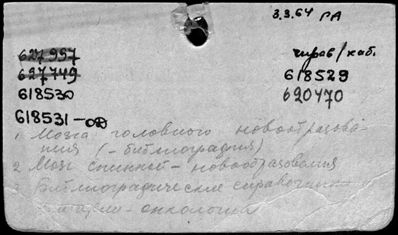 3.3.64 РА
627997
627749
618530
618531-
618529
620470
1 Мозга головного новообразова-
ния (-библиография)
2 Мозг спинной - новообразования
3 Библиографические справочники
онкология